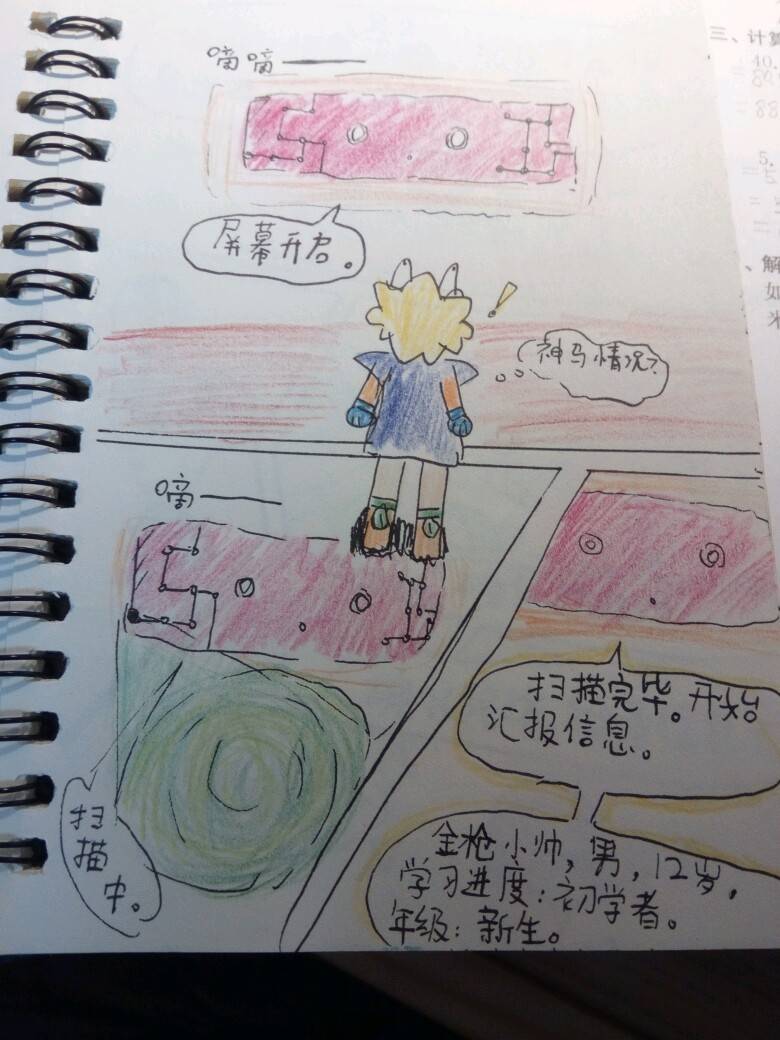 嘀嘀——
屏幕开启。
!
神马情况?
嘀——
扫
描
中。
扫描完毕。开始
汇报信息。
金枪小帅,男,12岁,
学习进度:初学者。
年级:新生。
三、计算
40.
5.
、解
如
米